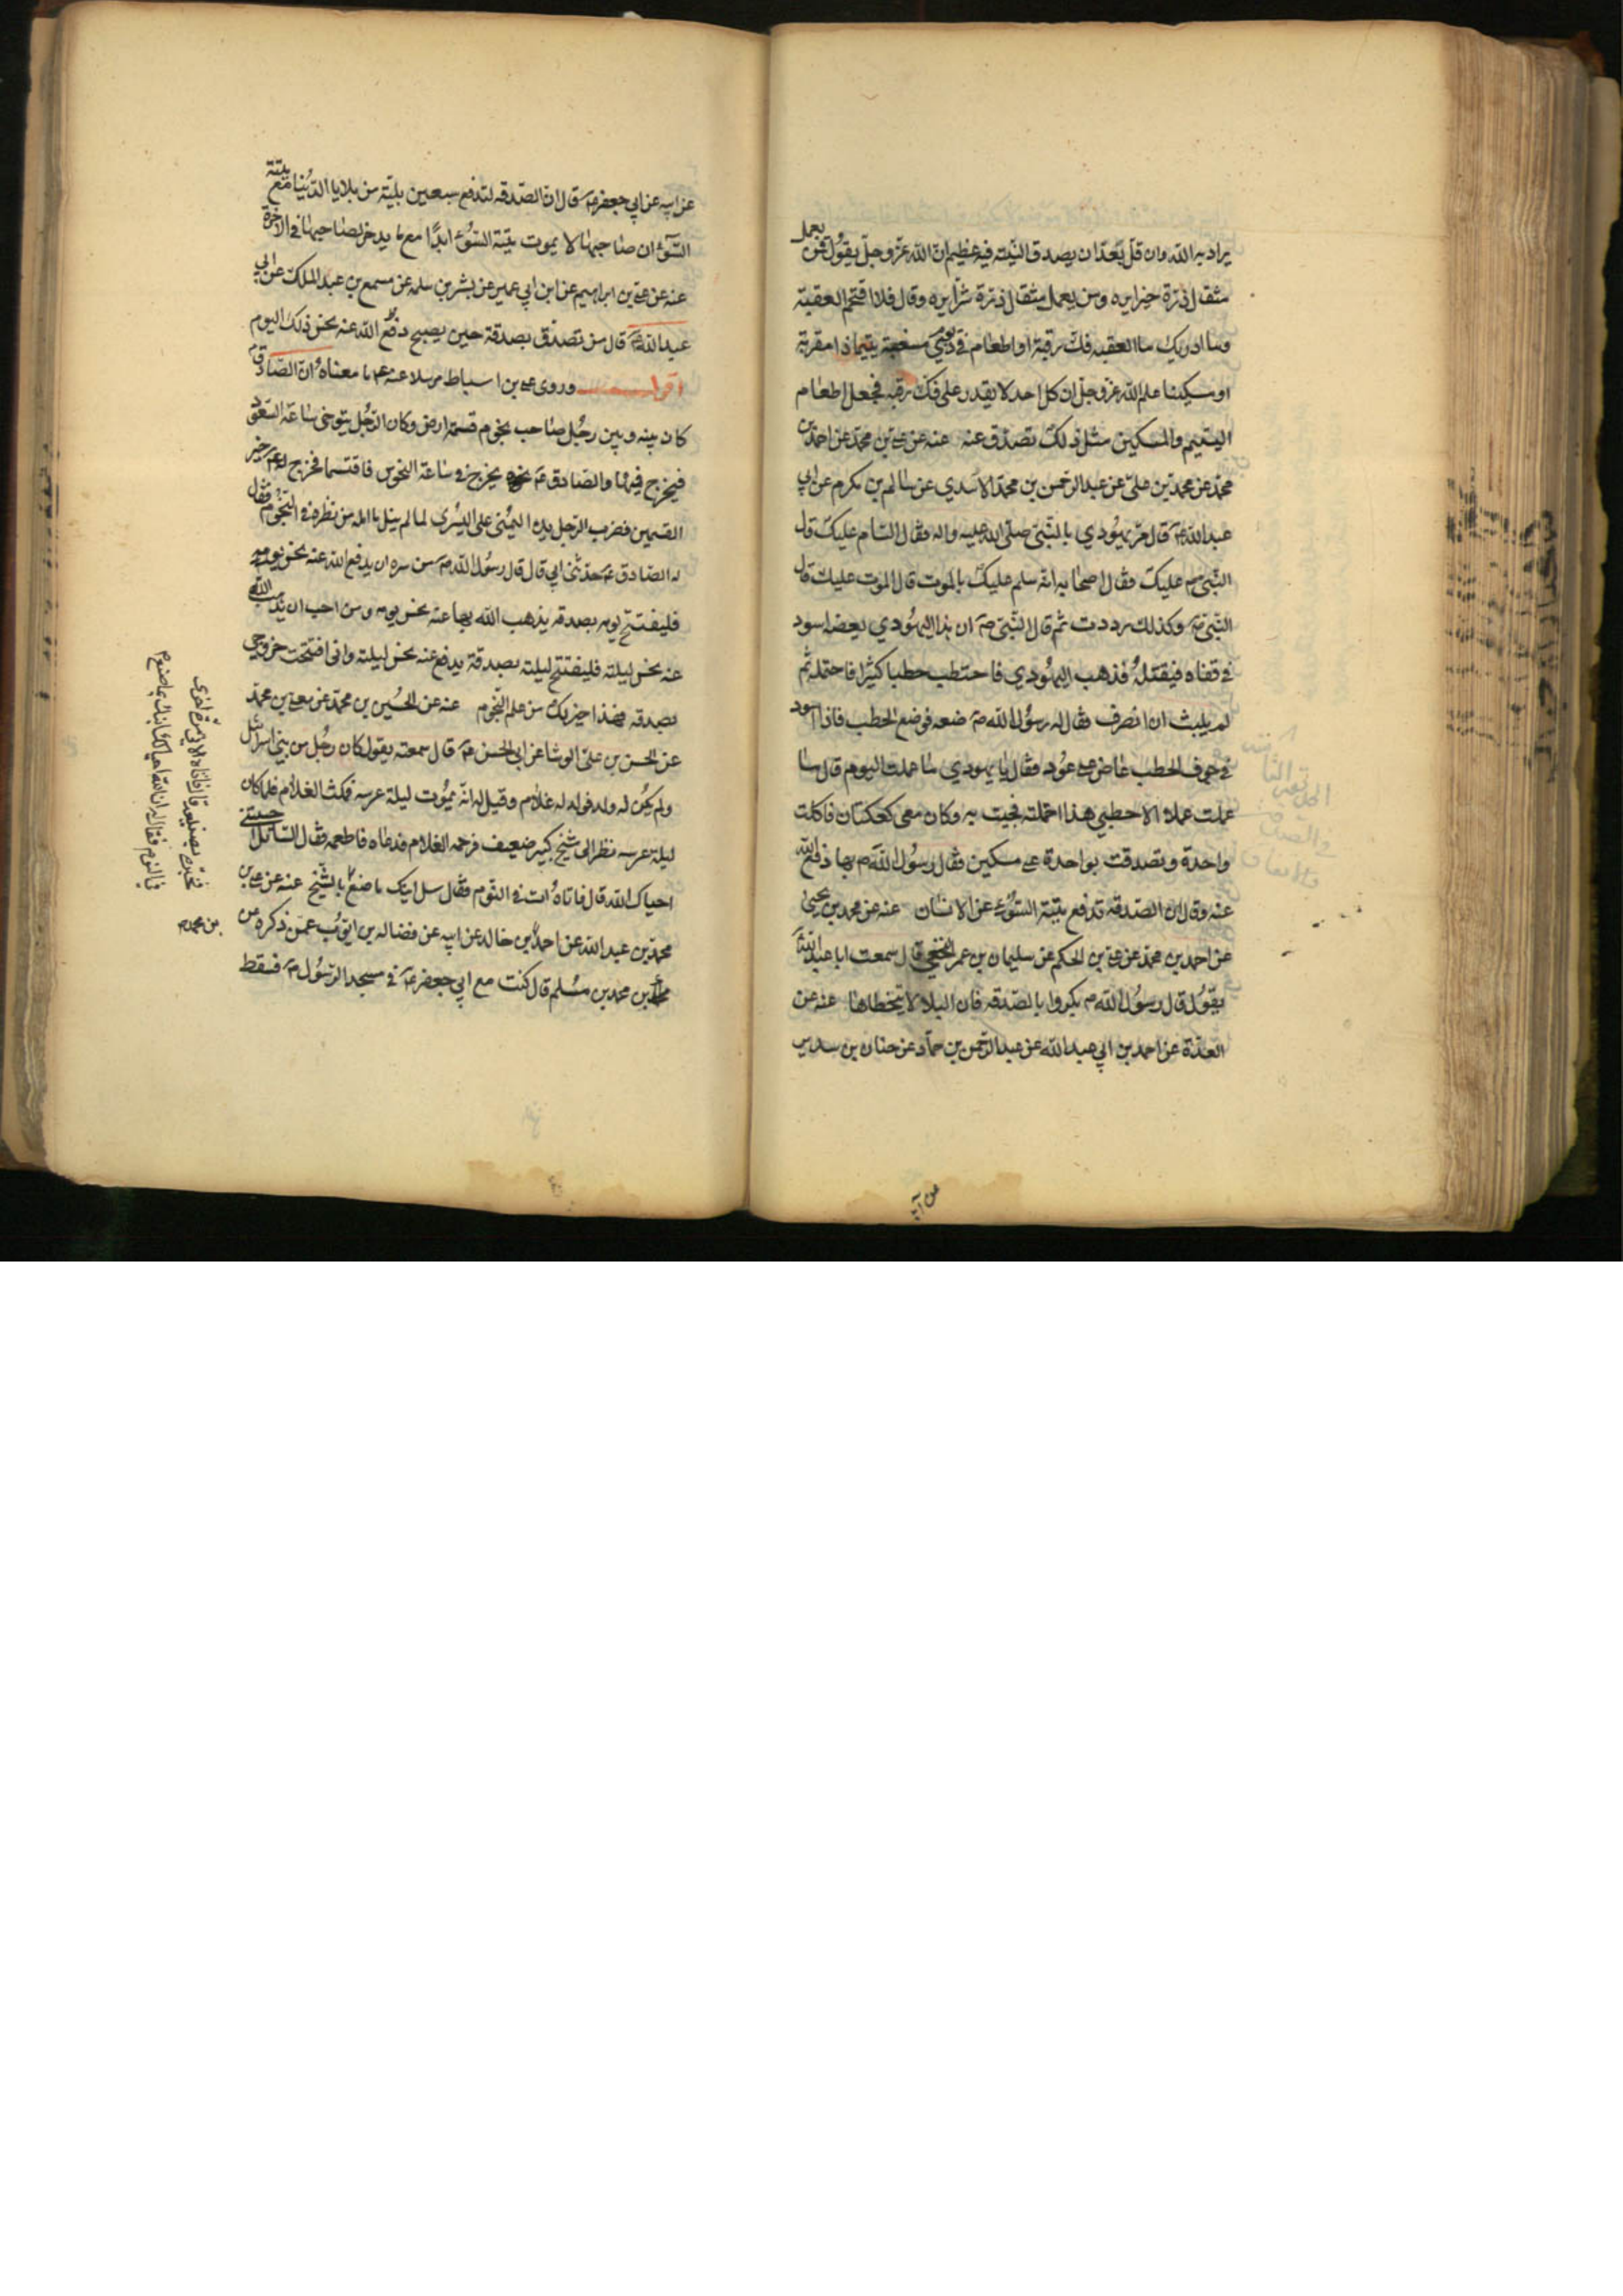 يراد به الله وان قل بعد ان يصدق النية فيه عظيم ان الله عز وجل يقول فمن يعمل
مثقال ذرة خيرا يره ومن يعمل مثقال ذرة شرا يره وقال فلا اقتحم العقبة
وما ادريك ما العقبه فك رقبة او اطعام في يوم ذي مسغبة يتيما ذا مقربة
او مسكينا علم الله عز وجل ان كل احد لا يقدر على فك رقبه فجعل اطعام
اليتيم والمسكين مثل ذلك تصدق عنه عنه عن علي بن محمد عن احمد بن
محمد عن محمد بن علي عن عبد الرحمن بن محمد الاسدي عن سالم بن مكرم عن ابي
عبد الله ع قال مر يهودي بالنبي صلى الله عليه واله فقال السام عليك قال
النبي ص عليك فقال اصحابه انه سلم عليك بالموت قال الموت عليك قال
النبي ص وكذلك رددت ثم قال النبي ص ان هذا اليهودي يعضه اسود
في قفاه فيقتله فذهب اليهودي فاحتطب حطبا كثيرا فاحتمله ثم
لم يلبث ان انصرف فقال له رسول الله ص ضعه فوضع الحطب فاذا اسود
في جوف الحطب عاض على عود فقال يا يهودي ما عملت اليوم قال ما
عملت عملا الا حطبي هذا احتملته فجيت به وكان معى كعكتان فاكلت
واحدة وتصدقت بواحدة على مسكين فقال رسول الله ص بها دفع الله
عنه وقال ان الصدقه تدفع ميتة السوء عن الانسان عنه عن محمد بن يحيى
عن احمد بن محمد عن علي بن الحكم عن سليمان بن عمر النخعي قال سمعت ابا عبد الله ع
يقول قال رسول الله ص بكروا بالصدقه فان البلاء لا يتخطاها عنه عن
العدة عن احمد بن ابي عبد الله عن عبد الرحمن بن حماد عن حنان بن سدير
عن ابيه عن ابي جعفر ع قال ان الصدقه لتدفع سبعين بلية من بلايا الدنيا مع ميتة
السوء ان صاحبها لا يموت ميتة السوء ابدا مع ما يدخر لصاحبها في الاخرة
عنه عن علي بن ابراهيم عن ابن ابي عمير عن بشر بن سلمه عن مسمع بن عبد الملك عن ابي
عبد الله ع قال من تصدق بصدقة حين يصبح دفع الله عنه نحس ذلك اليوم
اقول وروى علي بن اسباط مرسلا عنه ع ما معناه ان الصادق ع
كان بينه وبين رجل صاحب نجوم قسمة ارض وكان الرجل يتوخى ساعة السعود
فيخرج فيها والصادق ع يخرج في ساعة النحوس فاقتسما فخرج له ع خير
القسمين فضرب الرجل يده اليمنى على اليسرى لما لم ينل ما امله من نظره في النجوم فقال
له الصادق ع حدثني ابي قال قال رسول الله ص من سره ان يدفع الله عنه نحس يومه
فليفتتح يومه بصدقه يذهب الله بها عنه نحس يومه ومن احب ان يذهب الله
عنه نحس ليلته فليفتتح ليلته بصدقة يدفع عنه نحس ليلته واني افتتحت خروجي
بصدقه فهذا خير لك من علم النجوم عنه عن الحسين بن محمد عن معلى بن محمد
عن الحسن بن علي الوشا عن ابي الحسن ع قال سمعته يقول كان رجل من بني اسرائيل
ولم يكن له ولد فولد له غلام وقيل له انه يموت ليلة عرسه فمكث الغلام فلما كان
ليلة عرسه نظر الى شيخ كبير ضعيف فرحمه الغلام فدعاه فاطعمه فقال السائل احييتني
احياك الله قال فاتاه ات في النوم فقال سل ابنك ما صنع بالشيخ عنه عن علي بن
محمد بن عبد الله عن احمد بن خالد عن ابيه عن فضاله بن ايوب عمن ذكره عن
محمد بن مسلم قال كنت مع ابي جعفر ع في مسجد الرسول ص فسقط
فخبره بصنيعه قال فاتاه الاتي مرة اخرى
في النوم فقال له ان الله احيا لك ابنك بما صنع